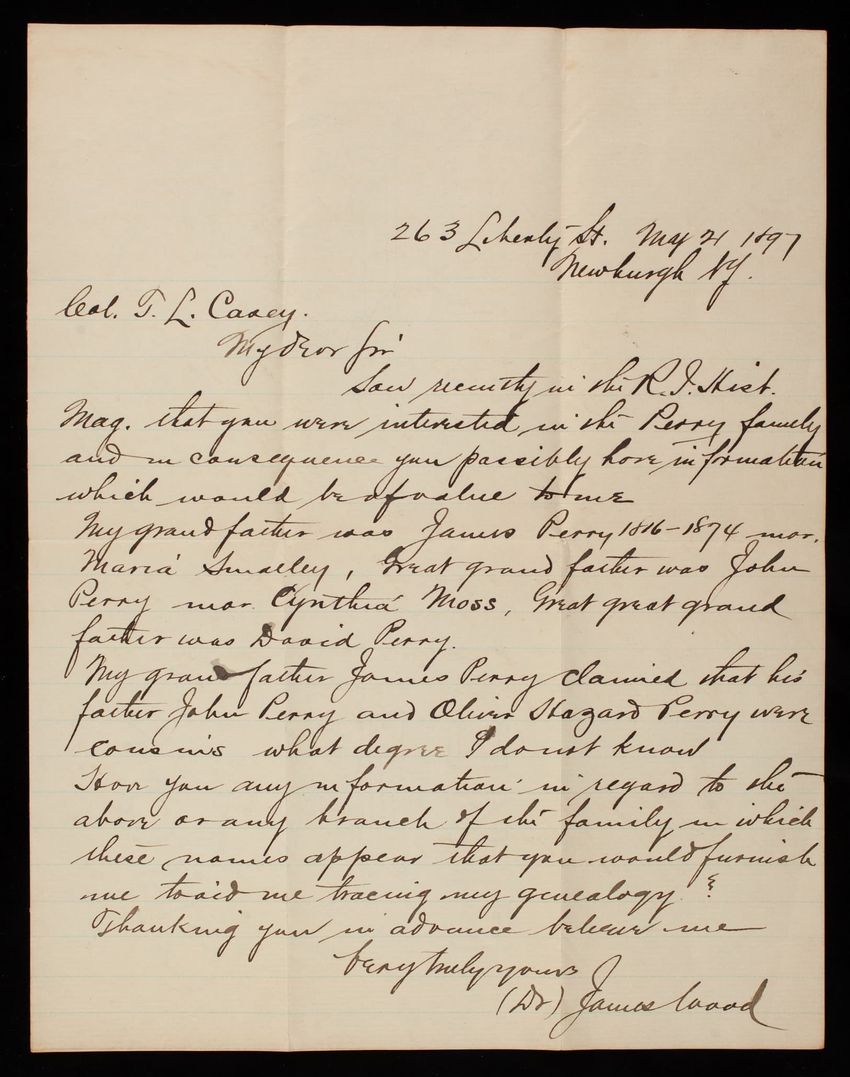 263 Liberty St. May 21 1897
Newburgh NY.
Col. T. L. Casey.
My Dear Sir
Saw recently in the R. I. Hist.
Mag. that you were interested in the Perry family
and in consequence you possibly have information
which would be of value to me
My grandfather was James Perry 1816-1874 mar.
Maria Smalley, Great grand father was John
Perry mar Cynthia Moss, Great great grand
father was David Perry.
My grand father James Perry claimed that his
father John Perry and Oliver Hazard Perry were
cousins what degree I do not know
Have you any information in regard to the
above or any branch of the family in which
these names appear that you would furnish
me to aid me tracing my genealogy?
Thanking you in advance believe me
Very truly yours
(Dr) James Wood